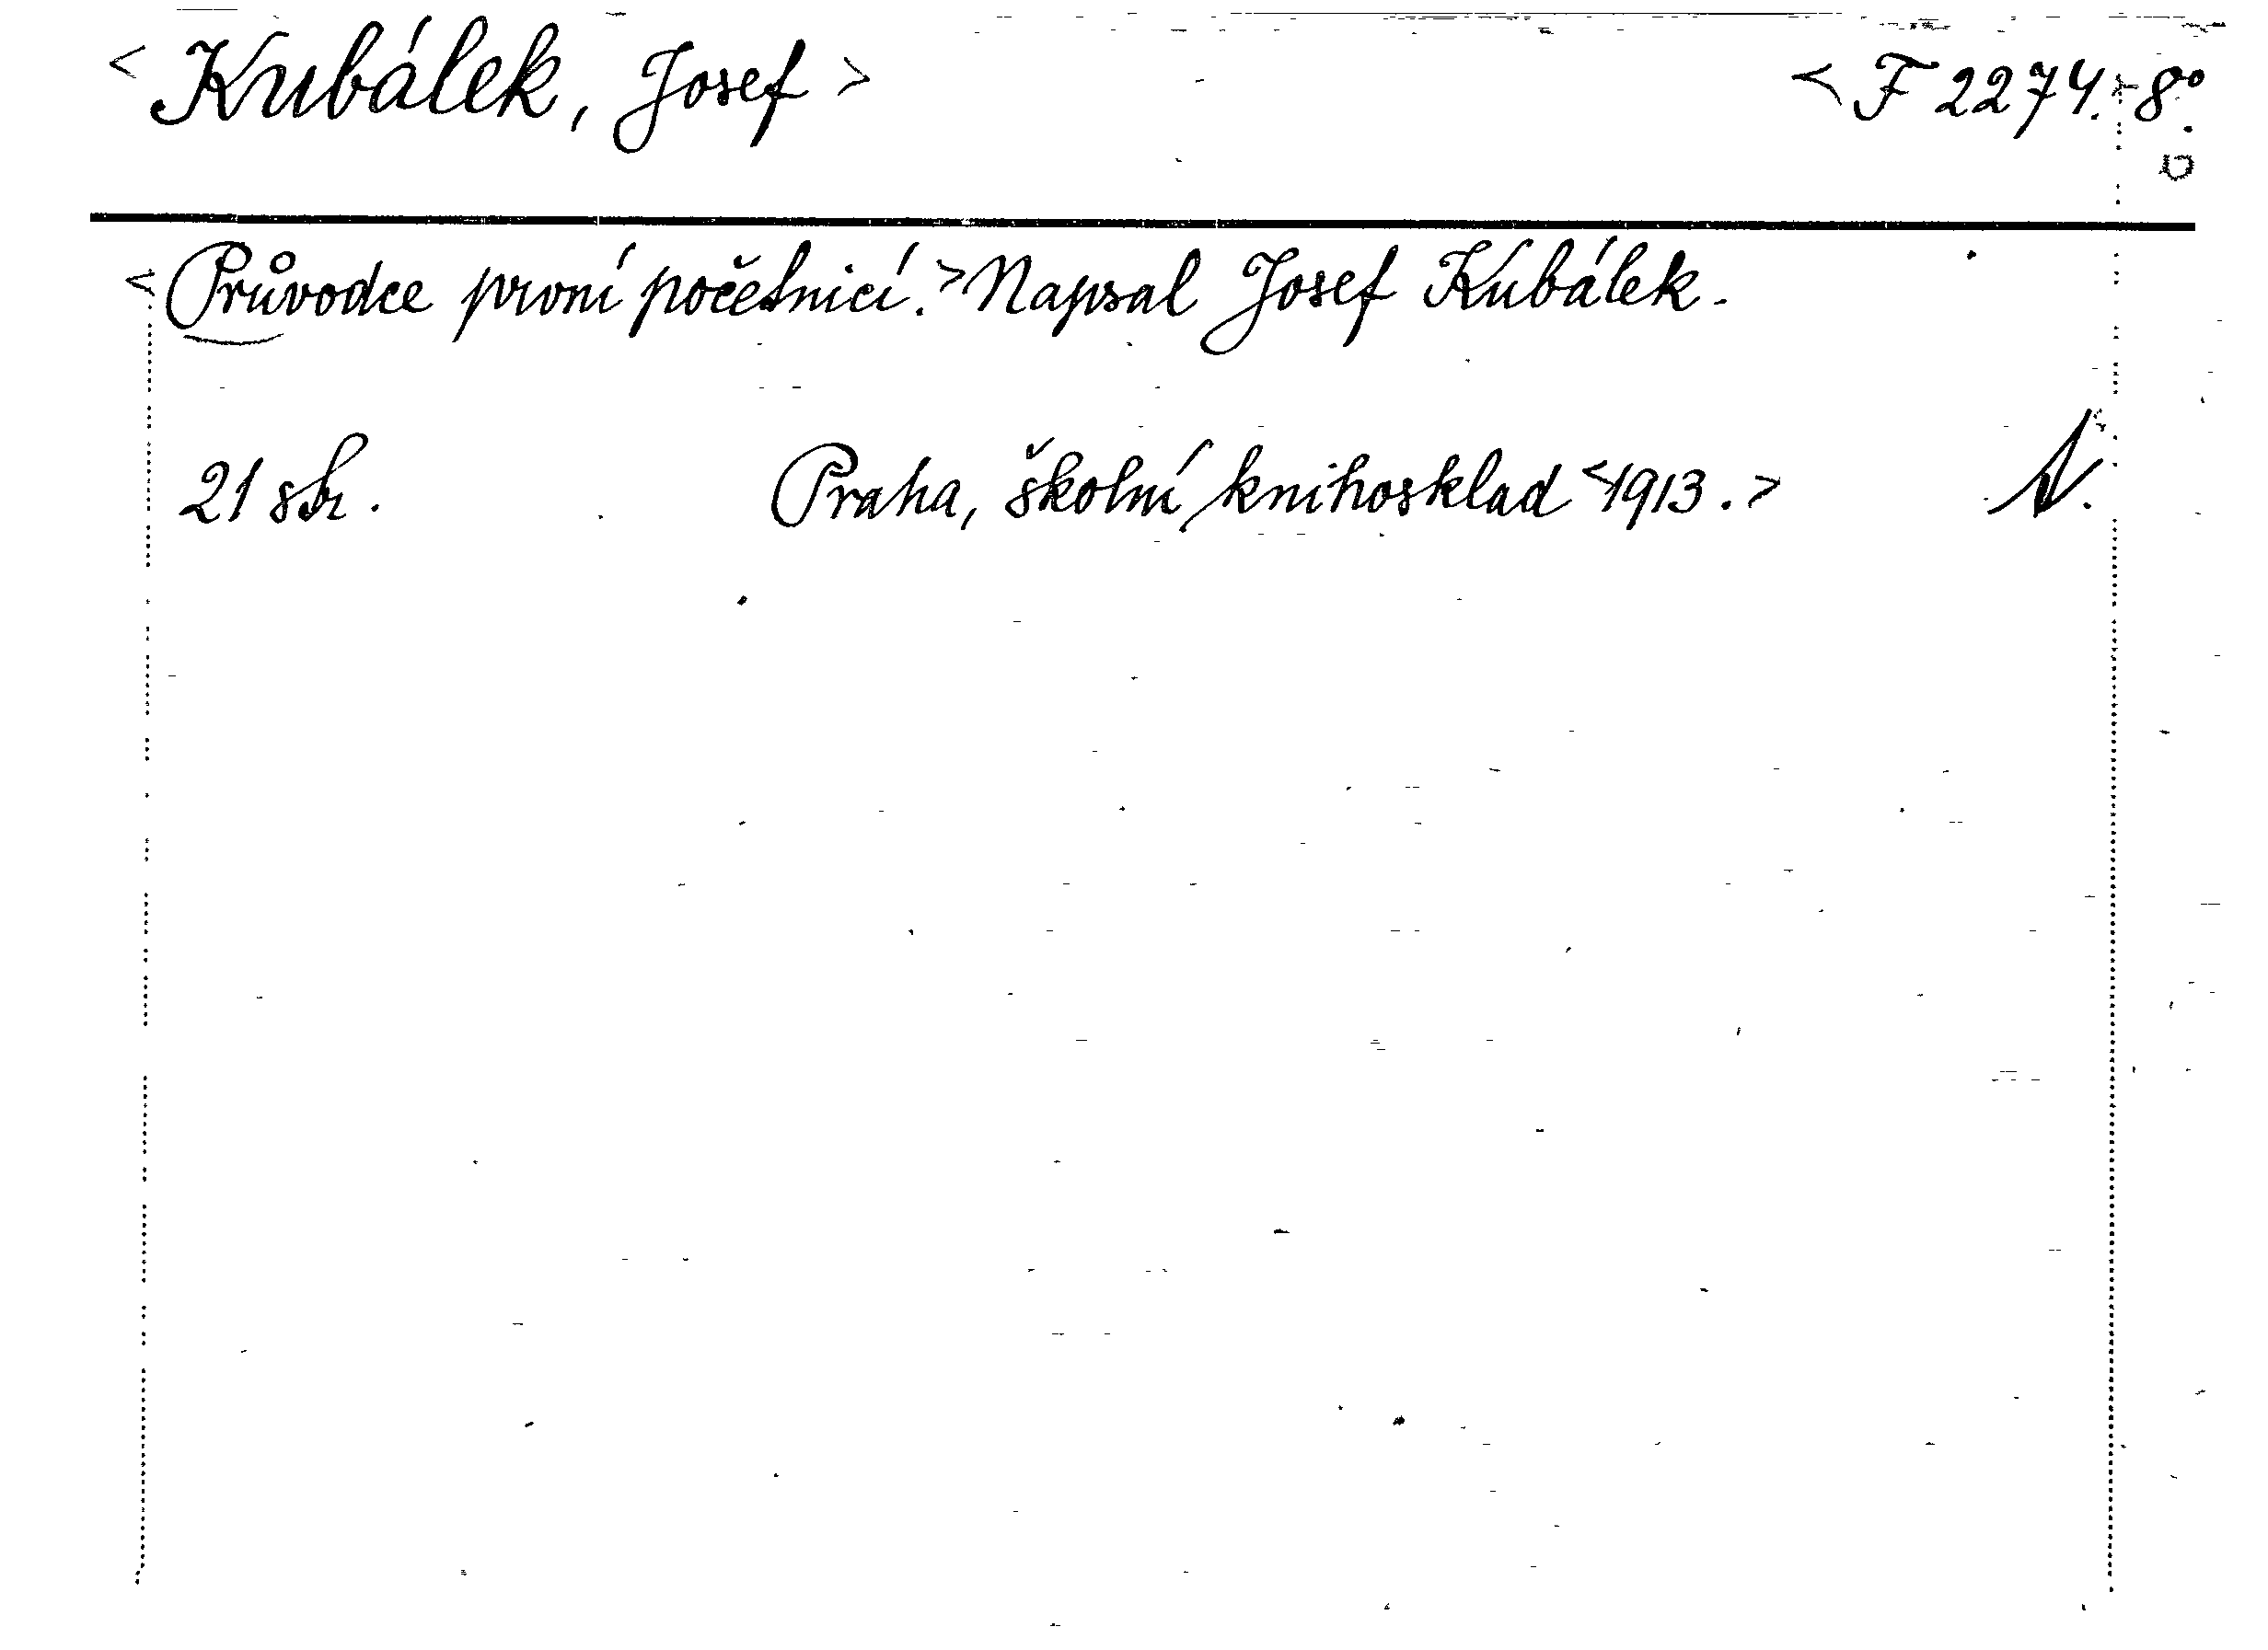 <Kubálek, Josef> <F 2274.-8°.
<Průvodce první početnicí.> Napsal Josef Kubálek.
21 str. Praha, školní knihosklad <1913.>